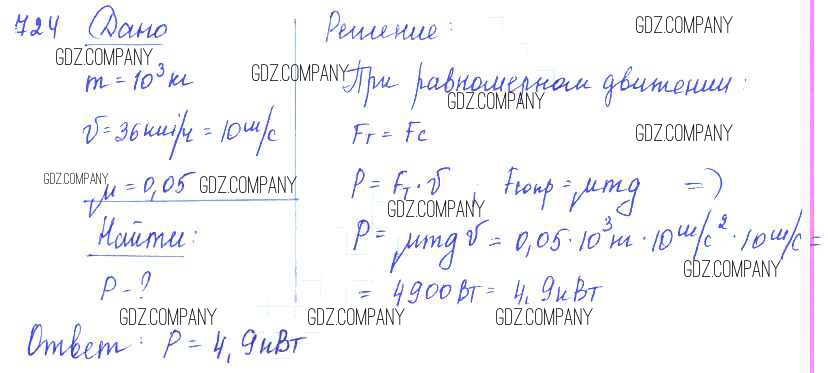 724 Дано
GDZ.COMPANY
m = 10³ кг
v = 36 км/ч = 10 м/с
GDZ.COMPANY
μ = 0,05 GDZ.COMPANY
Найти:
P - ?
GDZ.COMPANY
Решение: GDZ.COMPANY
GDZ.COMPANY При равномерном движении:
GDZ.COMPANY
Fт = Fc GDZ.COMPANY
P = Fт · v ; Fтопр = μmg =>
GDZ.COMPANY
P = μmg v = 0,05 · 10³ кг · 10 м/с² · 10 м/с =
GDZ.COMPANY
= 4900 Вт = 4,9 кВт
GDZ.COMPANY GDZ.COMPANY
Ответ: P = 4,9 кВт